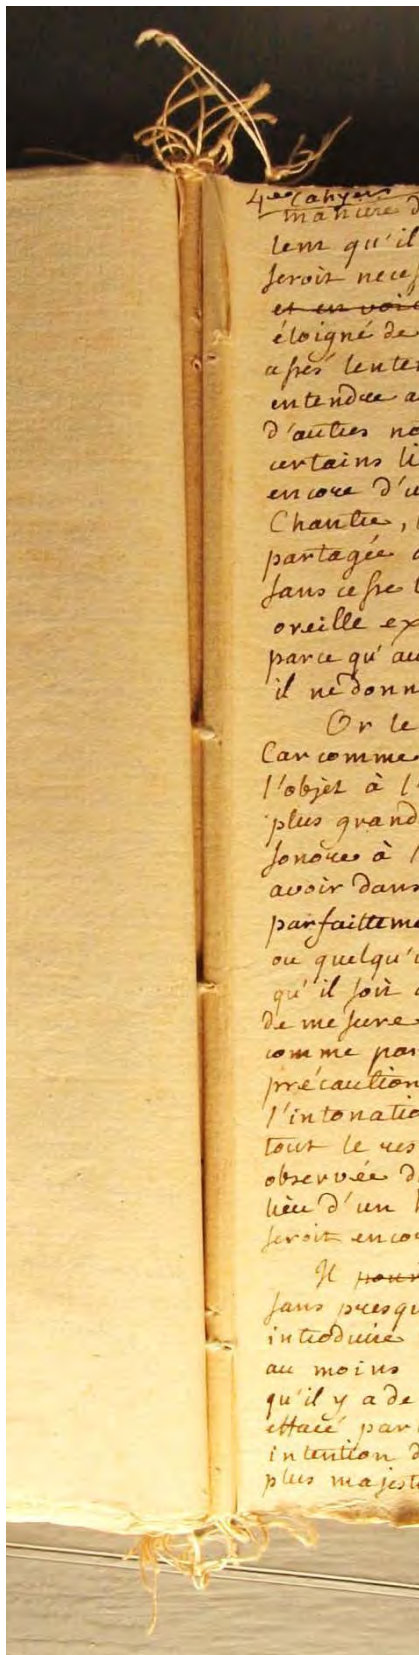 4me Cahyers
maniere d
lent qu'il
seroit neces
et en voi
éloigné de
après lenter
entendre a
d'autres no
certains li
encore d'u
Chantre,
partagée
sans cesse
oreille ex
parce qu'au
il ne donn
Or le
Car comme
l'objet à l'
plus grand
sonòres à
avoir dans
parfaitteme
ou quelqu'
qu'il soit
de mesure
comme par
précaution
l'intonatio
tout le res
observée d
lieu d'un
seroit encor
Il pour
sans presqu
introduire
au moins
qu'il y a de
effacé par
intention d
plus majest